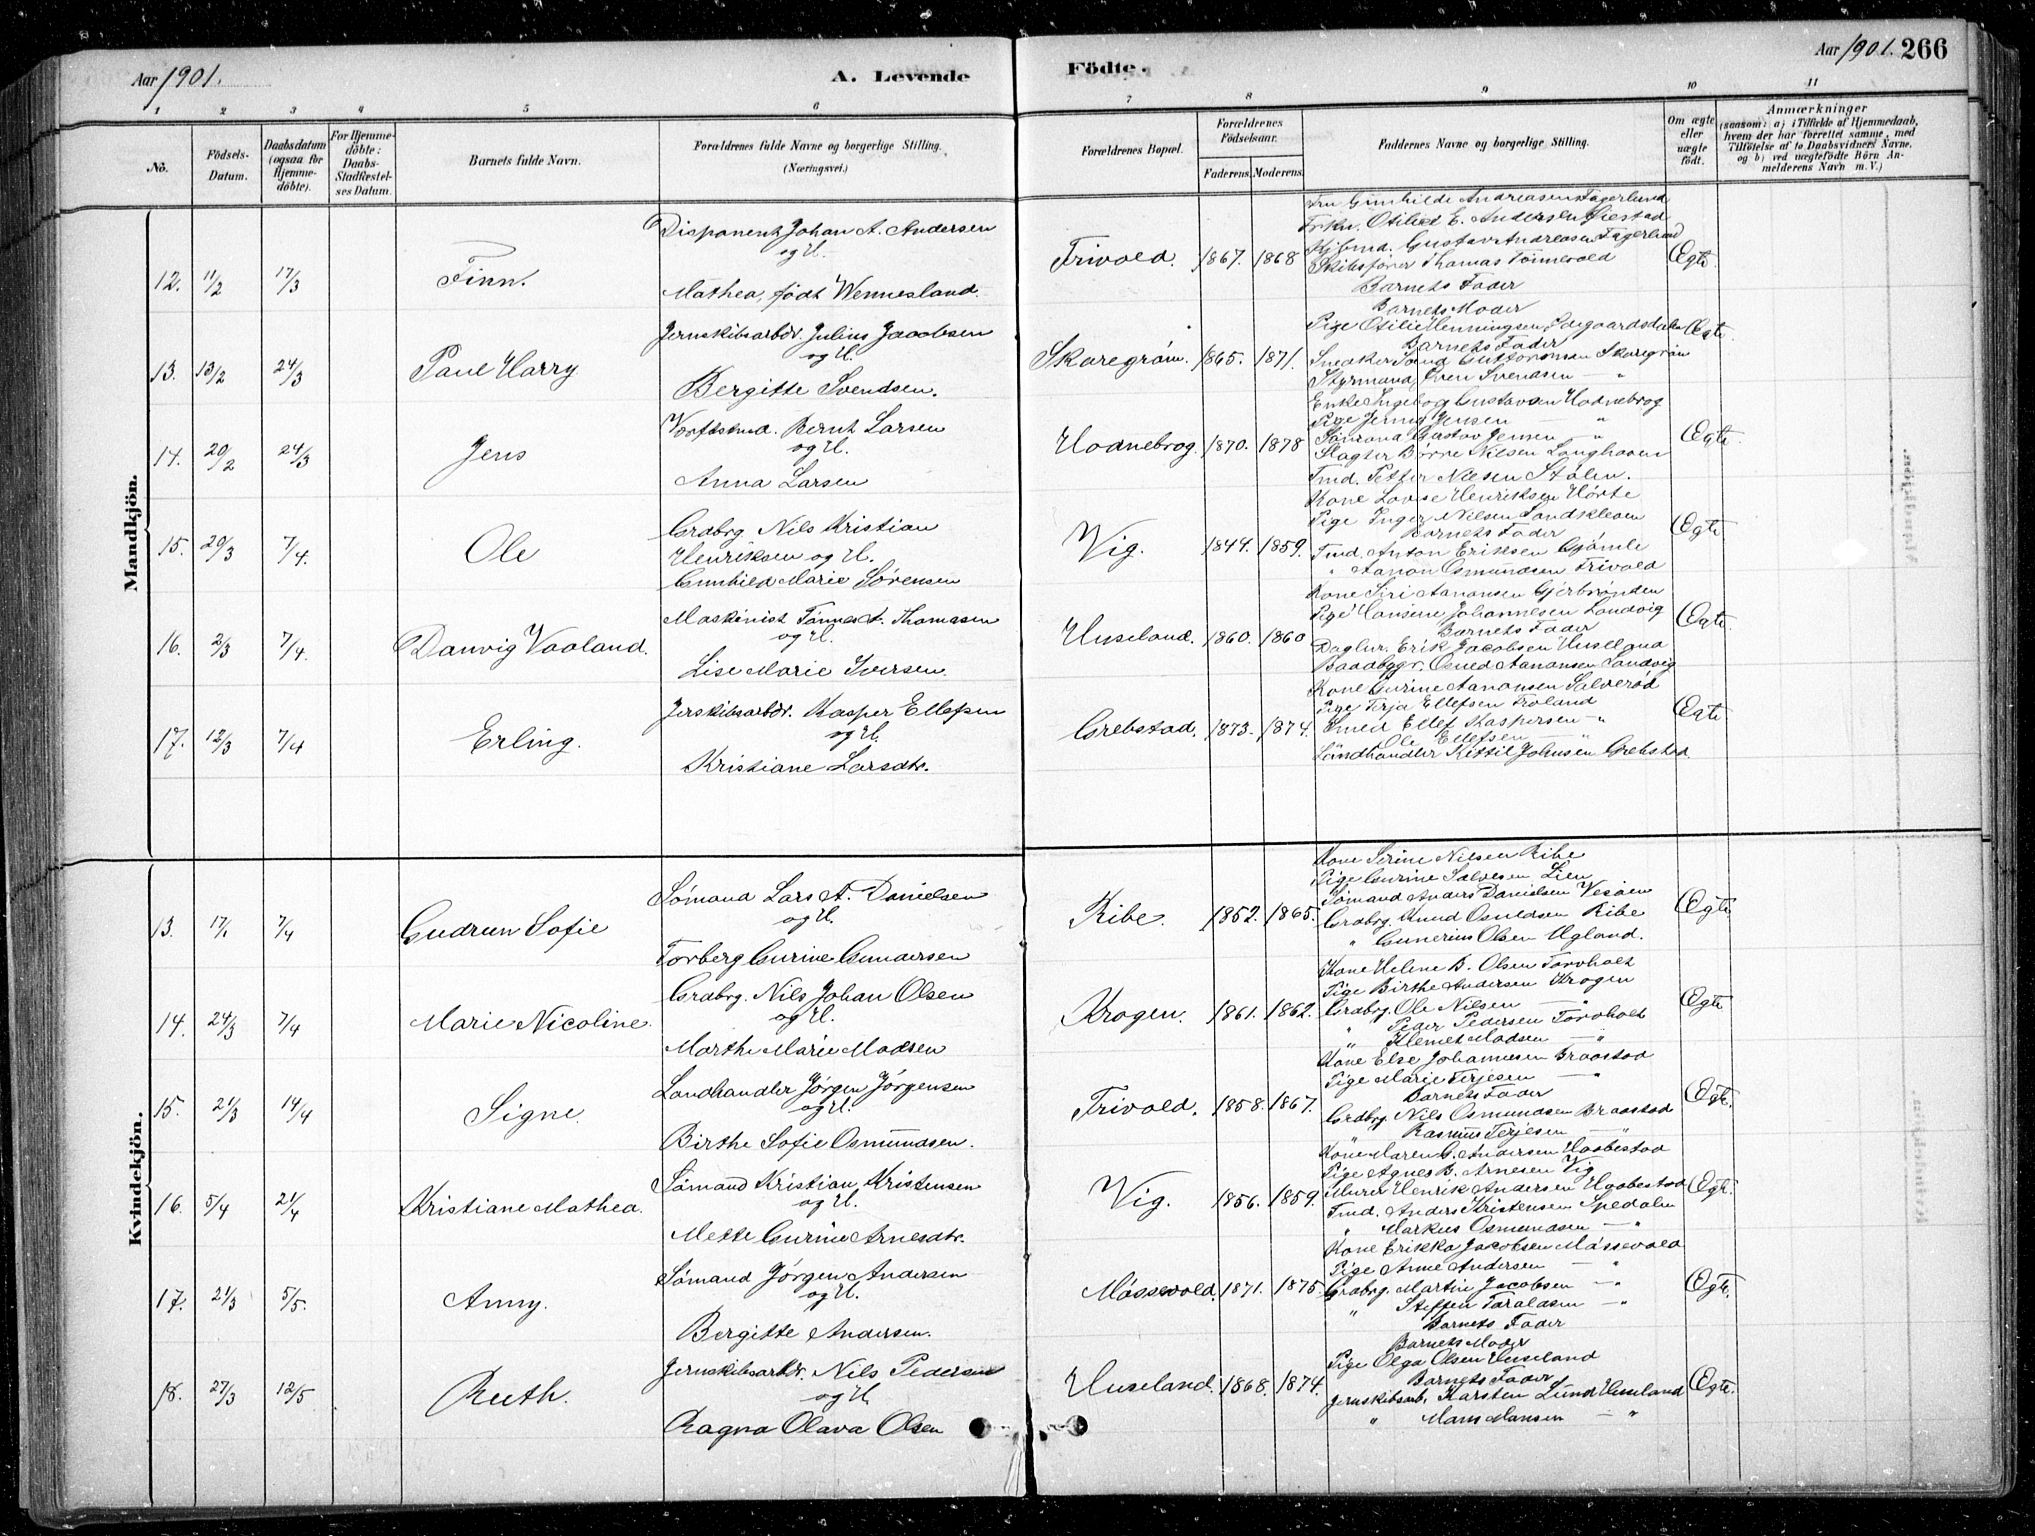 Aar 1901.
A. Levende
Födte.
Aar 1901.
266
1 2 3 4 5 6 7 8 9 10 11
No.
Födsels-Datum.
Daabsdatum (ogsaa for Hjemme-döbte).
For Hjemme-döbte: Daabs-Stadfæstel-ses Datum.
Barnets fulde Navn.
Forældrenes fulde Navne og borgerlige Stilling.
(Næringsvei.)
Forældrenes Bopæl.
Forældrenes Födselsaar.
Faderens. Moderens.
Faddernes Navne og borgerlige Stilling.
Om ægte eller uægte födt.
Anmærkninger
(saasom: a) i Tilfælde af Hjemmedaab, hvem der har forrettet samme, med Tilföielse af to Daabsvidners Navne, og b) ved uægtefödte Börn Anmelderens Navn m. V.)
Mandkjön.
12. 11/2 17/3 Finn.
Disponent Johan A. Andersen
og H.
Mathea, født Wennesland.
Trivold. 1867. 1868
Fru Gunhilde Andreasen Fagerlund
Frkn. Otilied E. Andersen
Kjøbmd. Gustav Andreasen Fagerlund
Skibsfører Thomas Tønnevold
Barnets Fader
Ægte.
13. 13/2 24/3 Paul Harry
Jernskibsarbdr. Julius Jacobsen
og H.
Bergitte Svendsen.
Skaregrøm. 1865. 1871.
Barnets Moder
Pige Otilie Henningsen
Barnets Fader
Snedker Guttormsen Skaregrøm
Styrmand Sven Svendsen — "
Ægte
14. 20/2 24/3 Jens
Værftsmd. Bernt Larsen
og H.
Anna Larsen
Hodnebrog. 1870. 1878
Enke Ingeborg Gustavsen Hodnebrog
Pige Jenny Jensen — "
Sømand Gustav Jensen — "
Slagter Børre Nilsen Langhaven
Tmd. Petter Nilsen Stølen.
Ægte.
15. 20/3 7/4. Ole
Grdbrg Nils Kristian
Henriksen og H.
Gunhild Marie Sørensen
Vig. 1849. 1859.
Kone Lovise Henriksen Hørte
Pige Inger Nilsen Landkleven
Barnets Fader
Tmd. Anton Eriksen Gjømle
" Aanon Osmundsen Trivold
Ægte
16. 2/3 7/4. Danvig Vaaland.
Maskinist Tønnes A. Thomasen
og H.
Lise Marie Iversen.
Huseland. 1860. 1860
Kone Siri Aanonsen Gjerbrønden
Pige Hansine Johannesen Landvig
Barnets Fader
Daglnr. Erik Jacobsen Huseland
Baadbyggr. Osmed Aanonsen Landvig
Ægte
17. 12/3 7/4 Erling.
Jerskibsarbdr. Kasper Ellefsen
og H.
Kristiane Larsdtr.
Grebstad. 1873. 1874.
Kone Gurine Aanonsen Salverød
Pige Terja Ellefsen Froland
Smed Ellef Kaspersen — "
Ole Ellefsen — "
Landhandler Kittil Johnsen Grebstad
Ægte
Kvindekjön.
13. 17/1 7/4 Gudrun Sofie
Sømand Lars A. Danielsen
og H.
Torberg Gurine Gundersen
Ribe. 1852. 1865.
Kone Serine Nilsen Ribe
Pige Gurine Salvesen Lien
Sømand Anders Danielsen Vesøen
Grdbrg. Knud Osuldsen Ribe
" Gunerius Olsen Ugland.
Ægte
14. 24/3 7/4 Marie Nicoline.
Grdbrg. Nils Johan Olsen
og H.
Marthe Marie Madsen
Krogen. 1861. 1862.
Kone Helene B. Olsen Torvholt
Pige Birthe Andersen Krogen
Grdbrg. Ole Nilsen — "
" Peder Pedersen Torvholt
" Klemet Madsen — "
Ægte
15. 21/3 14/4 Signe.
Landhandler Jørgen Jørgensen
og H.
Birthe Sofie Osmundsen.
Trivold. 1858. 1867.
Kone Else Johannesen Braastad
Pige Marie Terjesen — "
Barnets Fader
Grdbrg. Nils Osmundsen Braastad
" Rasmus Terjesen — "
Ægte.
16. 5/4 21/4 Kristiane Mathea.
Sømand Kristian Kristensen
og H.
Mette Gurine Arnesdtr.
Vig. 1856. 1859.
Kone Maren G. Andersen Haabestad
Pige Agnes B. Arnesen Vig
Murer Henrik Andersen Haabestad
Tmd. Anders Kristensen Spedalen
" Markus Osmundsen — "
Ægte.
17. 21/3 5/5. Anny.
Sømand Jørgen Andersen
og H.
Bergitte Andersen.
Møssevold. 1871. 1875
Kone Erikka Jacobsen Møssevold
Pige Anne Andersen — "
Grdbrg. Martin Jacobsen — "
" Steffen Taraldsen — "
Barnets Fader
Ægte.
18. 27/3 12/5 Ruth.
Jernskibsarbdr. Nils Pedersen
og H.
Ragna Olava Olsen
Huseland. 1868. 1874.
Barnets Moder
Pige Olga Olsen Huseland
Barnets Fader
Jernskibsarb. Karsten Lund Huseland
" Hans Hansen — "
Ægte.